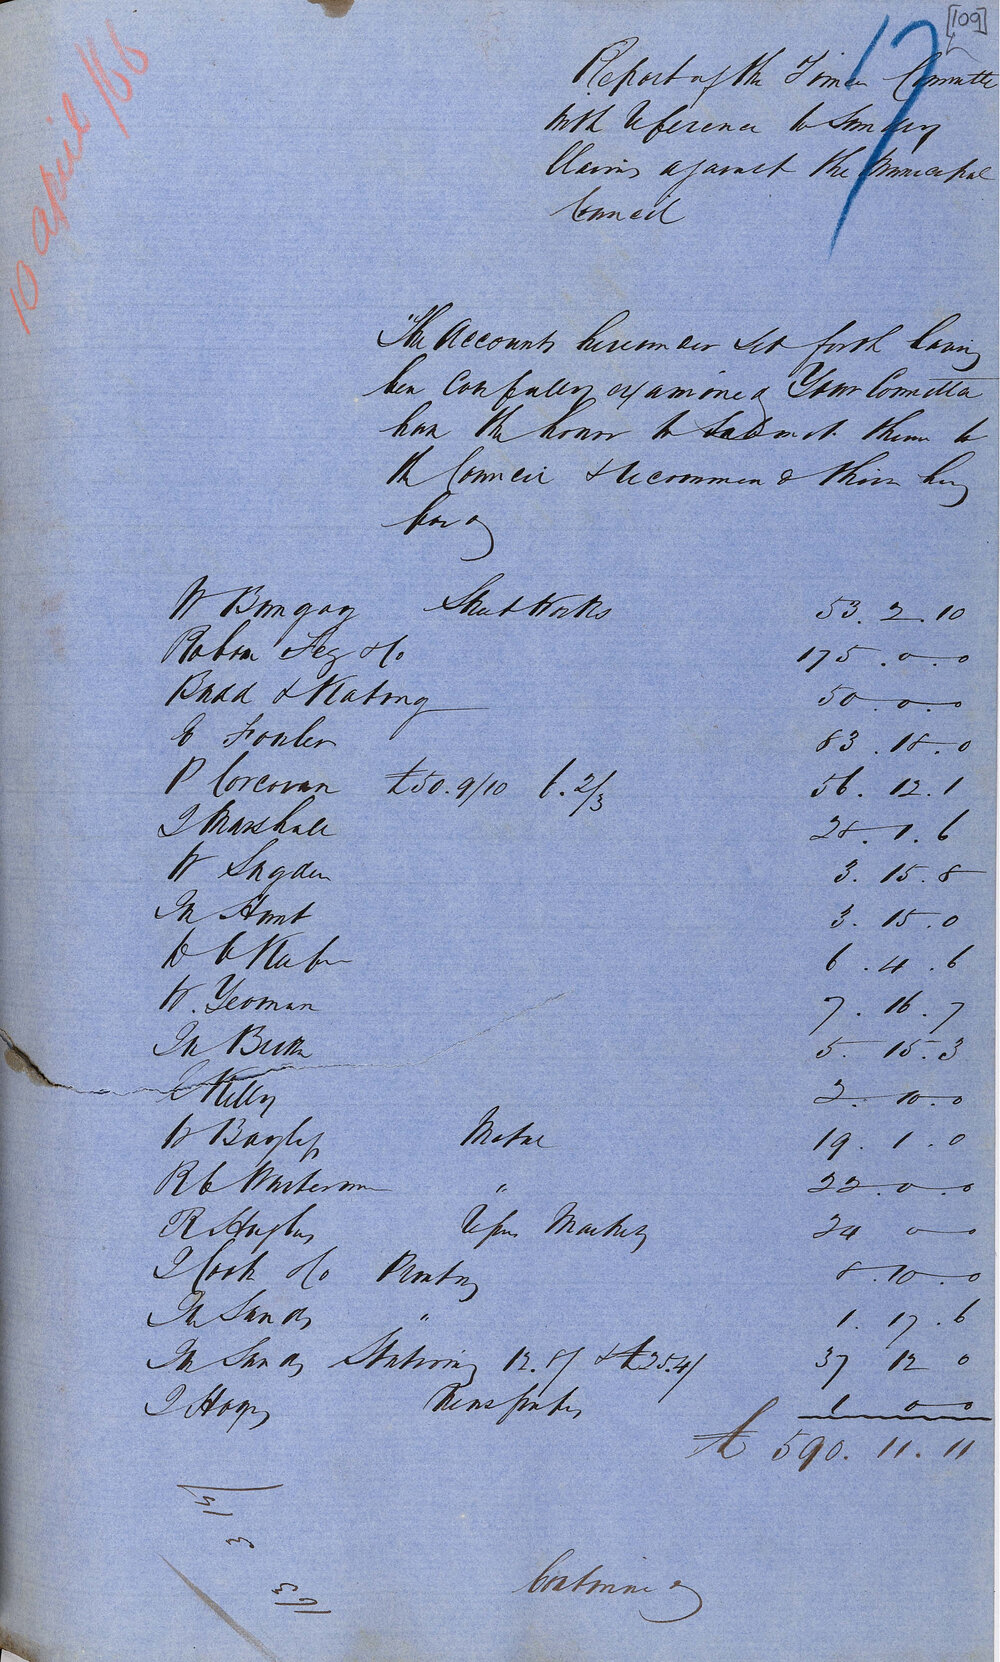 [109]
17
10 april /66
Report of the Finance Committee
with reference to Sundry
Claims against the Municipal
Council
The Accounts hereunder set forth having
been carefully examined Your Committee
have the honor to submit them to
the Council & recommend their being
paid
W Bungay Street Works 53. 2. 10
175. 0. 0
Budd & Keating 50. 0. 0
E Fowler 83. 18. 0
P Corcoran £50. 9/10 6. 2/3 56. 12. 1
J Marshall 28. 1. 6
W Sugden 3. 15. 8
Jn Hunt 3. 15. 0
6. 4. 6
W. Yeoman 7. 16. 7
Jn 5. 15. 3
Kelly 2. 10. 0
W Metal 19. 1. 0
R C Waterman " 22. 0. 0
R Hughes Repairs Markets 24 0 0
J Cook & Co Printing 8. 10. 0
Jn Sands " 1. 17. 6
Jn Sands Stationery 12. 8/ & £25. 4/ 37 12 0
J Newspapers 1 0 0
£ 590. 11. 11
13
3
13
Continued